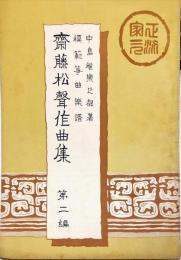 中島雅楽之都著
模範箏曲楽譜
齋藤松聲作曲集
第二編
正派
家元